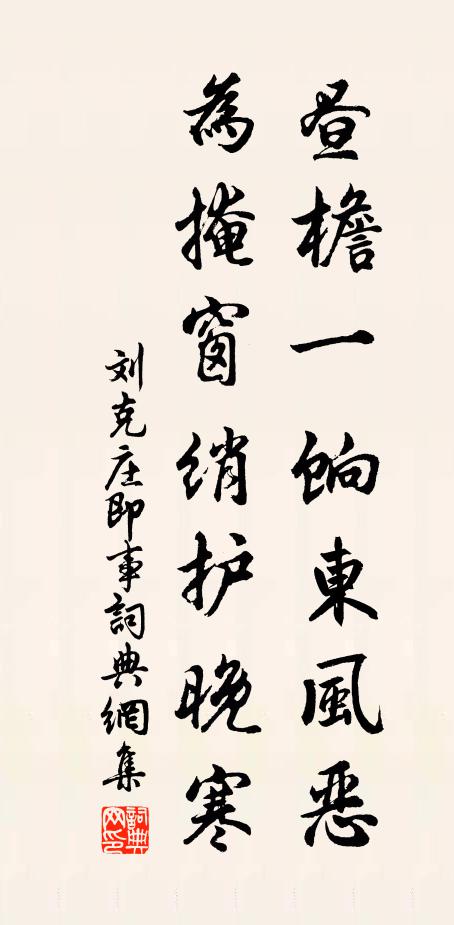 昼檐一餉東風恶
為掩窗綃护晚寒
刘克庄即事詞典網集
詞典網印